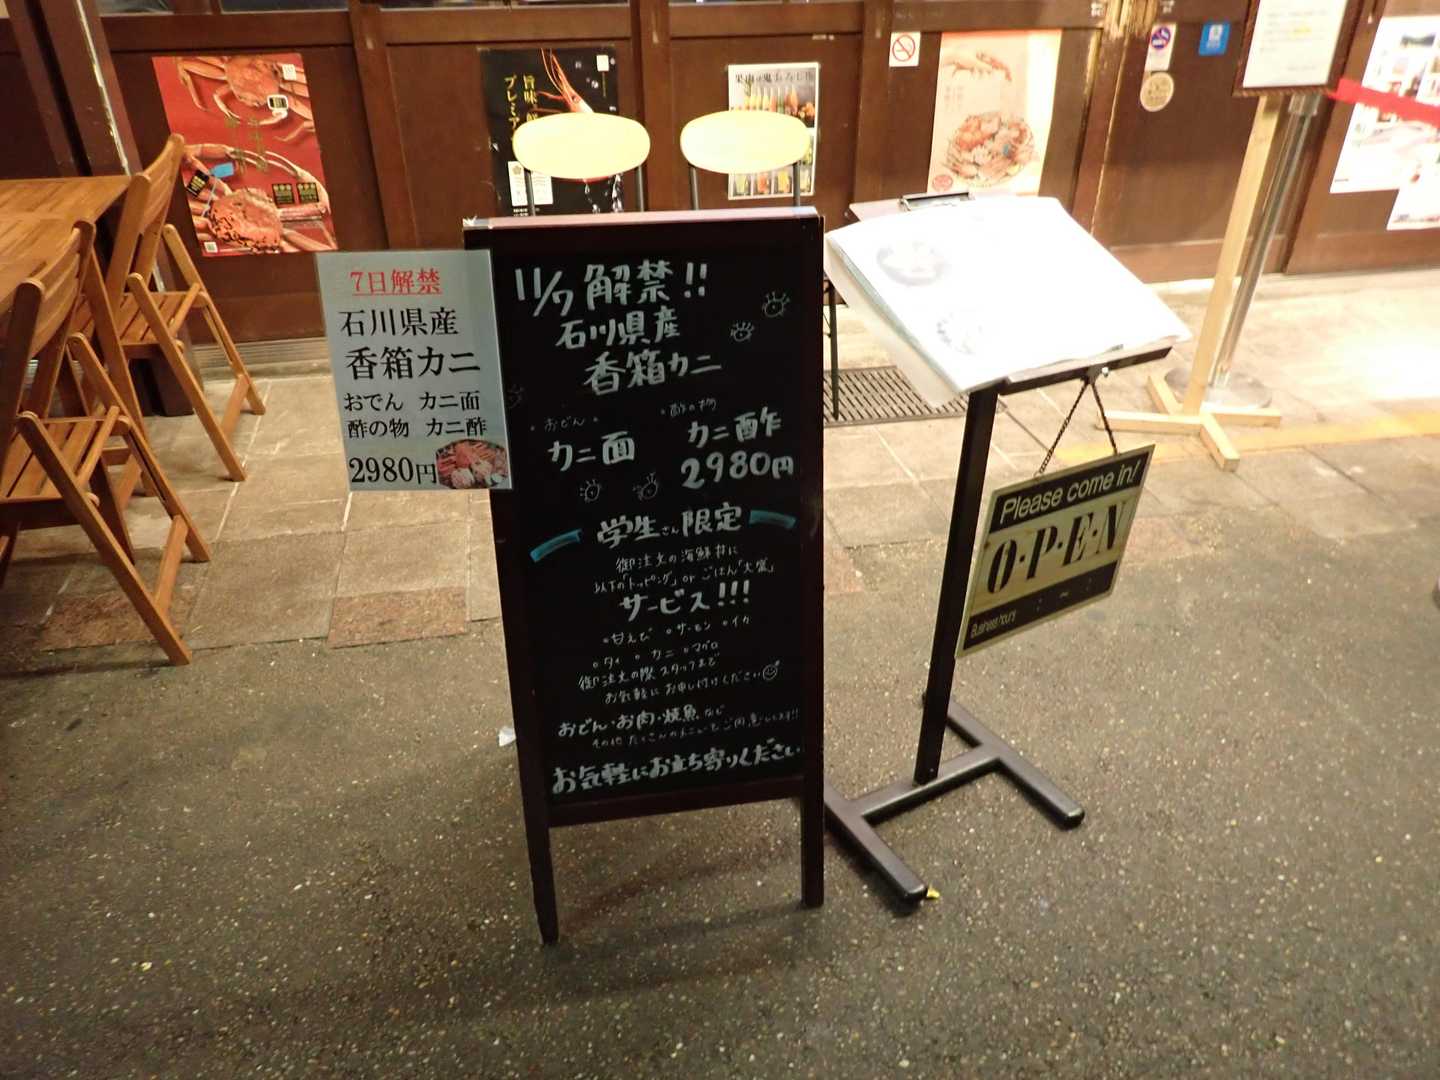 旨味、
プレミア
7日解禁
石川県産
香箱カニ
おでん カニ面
酢の物 カニ酢
2980円
11/7 解禁!!
石川県産
香箱カニ
おでん
カニ面
酢の物
カニ酢
2980円
学生さん限定
御注文の海鮮丼に
以下の「トッピング」or ごはん「大盛」
サービス!!!
甘えび サーモン イカ
タイ カニ マグロ
御注文の際スタッフまで
お気軽にお申し付けください
おでん・お肉・焼魚 など
その他 たくさんのメニューをご用意してます!!
お気軽にお立ち寄りください
Please come in!
O・P・E・N
Business hours : ~ :